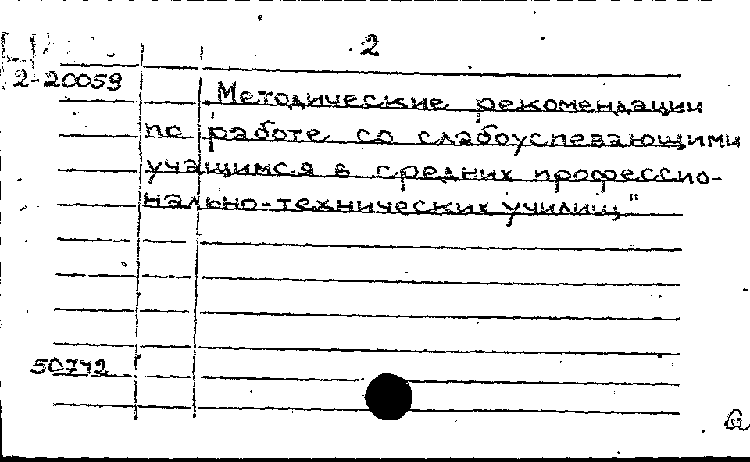 2
2-20059
Методические рекомендации
по работе со слабоуспевающими
учащимися в средних профессио-
нально-технических училищ"
50742